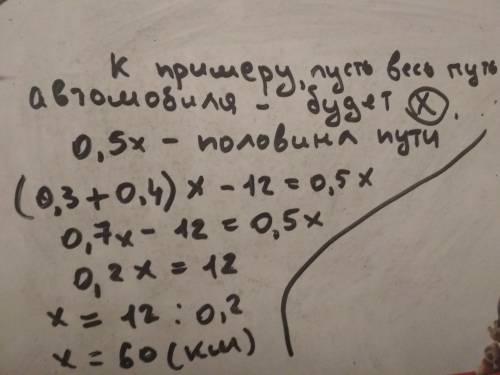 К примеру, пусть весь путь
автомобиля - будет x.
0,5x - половина пути
(0,3 + 0,4) x - 12 = 0,5x
0,7x - 12 = 0,5x
0,2x = 12
x = 12 : 0,2
x = 60 (км)